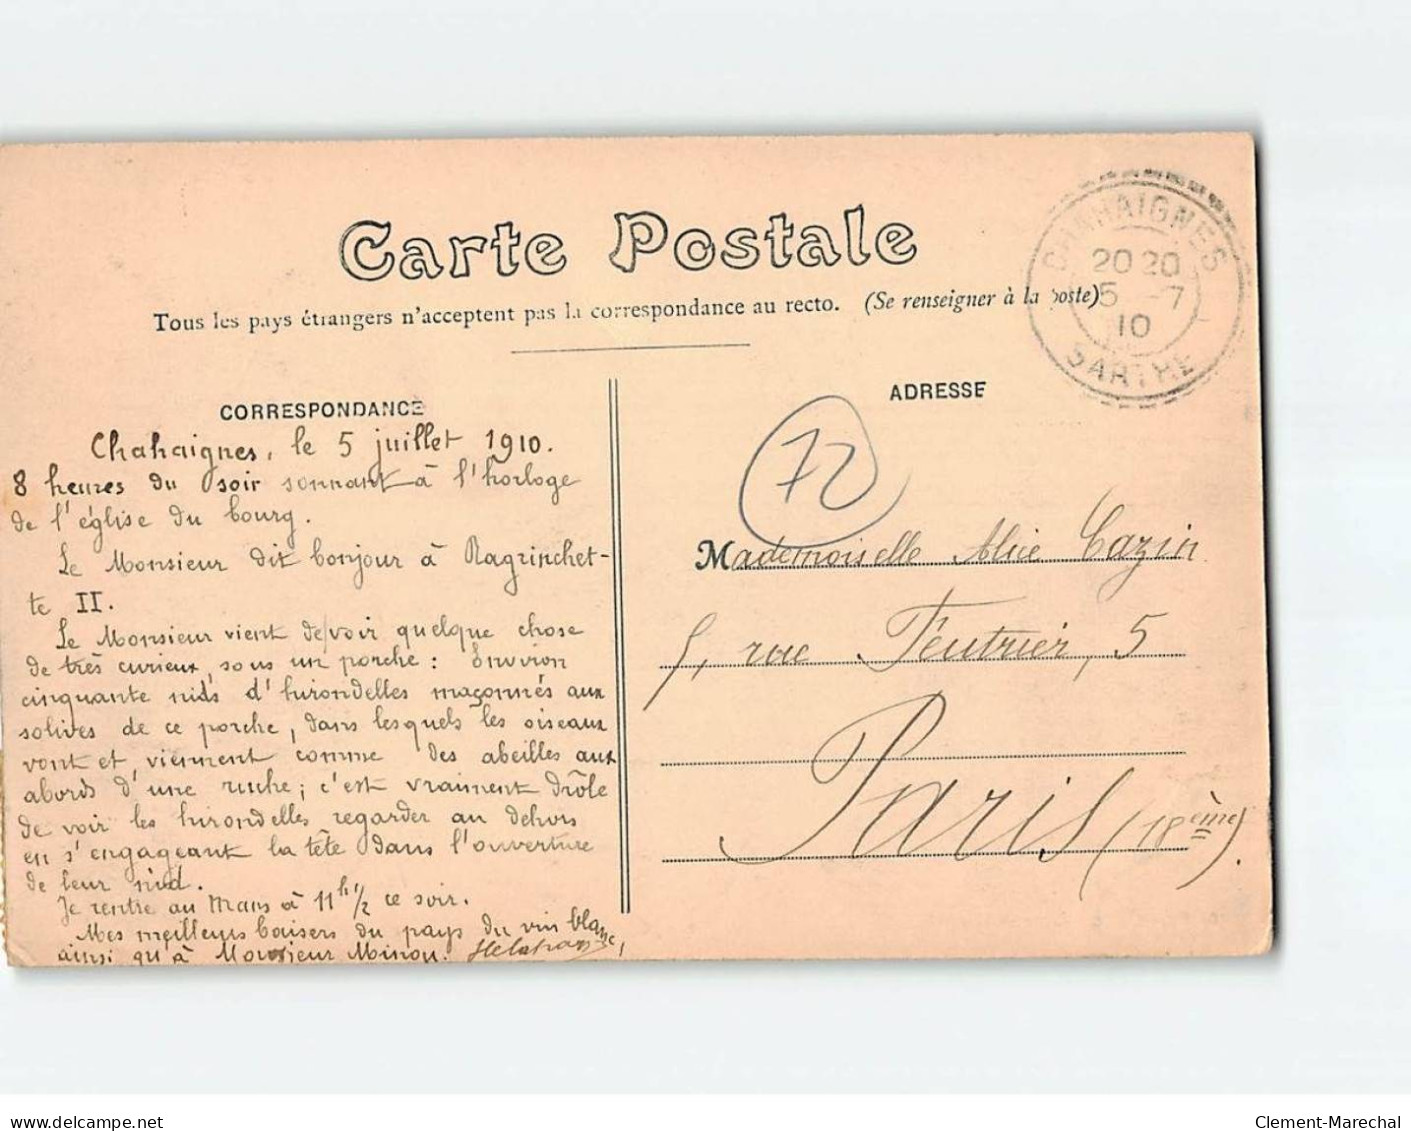 Carte Postale
Tous les pays étrangers n'acceptent pas la correspondance au recto. (Se renseigner à la poste)
CHAHAIGNES
20 20
5 -7
10
SARTHE
CORRESPONDANCE
Chahaignes, le 5 juillet 1910.
8 heures du soir sonnant à l'horloge
de l'église du bourg.
Le Monsieur dit bonjour à Ragrinchet-
te II.
Le Monsieur vient de voir quelque chose
de très curieux, sous un porche : Environ
cinquante nids d'hirondelles maçonnés aux
solives de ce porche, dans lesquels les oiseaux
vont et viennent comme des abeilles aux
abords d'une ruche ; c'est vraiment drôle
de voir les hirondelles regarder au dehors
en s'engageant la tête dans l'ouverture
de leur nid.
Je rentre au Mans à 11h 1/2 ce soir.
Mes meilleurs baisers du pays du vin blanc,
ainsi qu'à Monsieur Minou.
ADRESSE
72
Mademoiselle Alice Cazin
5, rue Feutrier, 5
Paris (18ème).
www.delcampe.net
Clement-Marechal